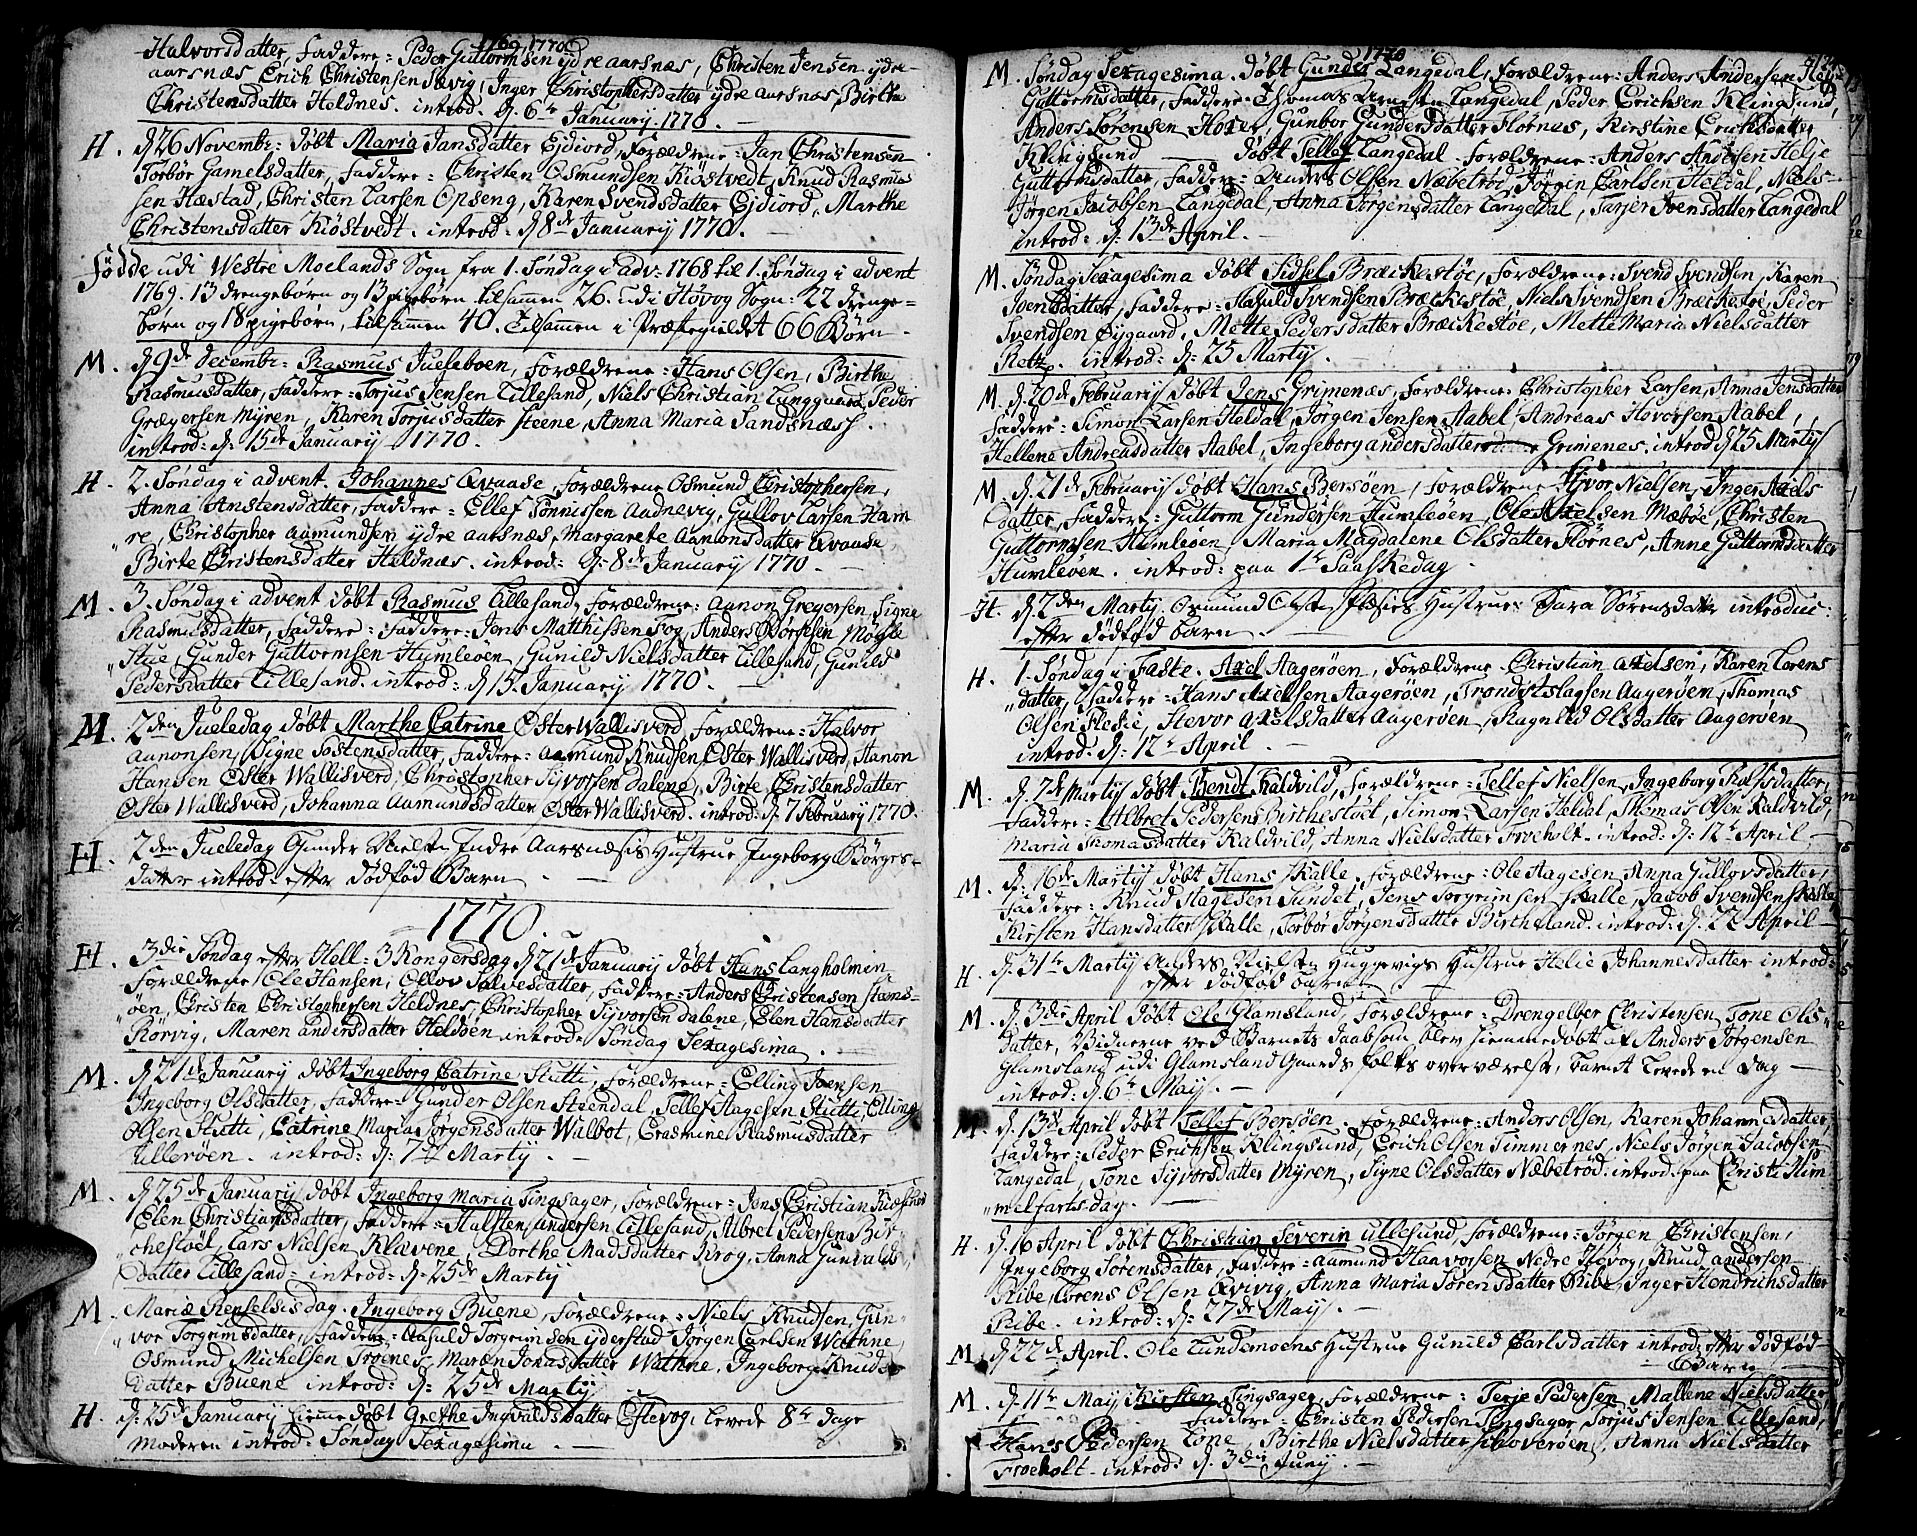 1769. 1770
Halvorsdatter, Faddere: Peder Guttormsen ydre aarsnæs, Christen Jensen ydre
aarsnæs Erich Christensen Sævig, Inger Christophersdatter ydre aarsnæs Birthe
Christensdatter Heldnes. introd. d. 6te January 1770.
H. d 26 Novembr: døbt Maria Jansdatter Ejdiord, Forældrene: Jan Christensen
Torbør Gamelsdatter, Faddere: Christen Osmundsen Kiøstvedt, Knud Rasmus
sen Hæstad, Christen Larsen Opseng, Karen Svendsdatter Ejdiord, Marthe
Christensdatter Kiøstvedt. introd: d 8de January 1770.
Fødde udi Westre Moelands Sogn fra 1. Søndag i adv: 1768 til 1. Søndag i advent
1769. 13 drengebørn og 13 pigebørn tilsammen 26. udi Høvog Sogn: 22 drenge-
børn og 18 pigebørn, tilsammen 40. Tilsammen i Præstegieldet 66 Børn.
M. d 9de decembr: Rasmus Jueleboen, Forældrene: Hans Olsen, Birthe
Rasmusdatter, Faddere: Torjus Jensen Lillesand, Niels Christian Lunggaard, Peder
Grægersen Myren, Karen Torjusdatter Steene, Anna Maria Sandsnæss.
introd: d. 15de January 1770.
H. 2. Søndag i advent. Johannes Qvaase, Forældrene Osmund Christophersen,
Anna Anstensdatter, Faddere: Ellef Tønnissen Aadnevig, Gullov Larsen Ham
re, Christopher Aamundsen ydre aarsnæs, Margarete Aanonsdatter Qvaase
Birte Christensdatter Heldnæs. introd: d: 8de January 1770.
M. 3. Søndag i advent døbt Rasmus Lillesand, Forældrene: Aanon Gregersen, Signe
Rasmusdatter, Faddere: Faddere: Jens Matthissen Fog, Anders Børresen Møgle
stue, Gunder Guttormsen Humleoen, Gunild Nielsdatter Lillesand, Gunild
Pedersdatter Lillesand. introd: d 15. January 1770.
M. 2den Jueledag døbt Marthe Catrine Øster Wallisverd, Forældrene: Halvor
Aanonsen, Signe Jostensdatter, Faddere: Aamund Knudsen Øster Wallisverd, Hanon
Hansen Øster Wallisverd, Christopher Syvorsen Dalene, Birte Christensdatter
Øster Wallisverd, Johanna Aamundsdatter Øster Wallisverd. introd: d. 7 February 1770.
H. 2den Jueledag Gunder Nielsen Indre Aarsnæsis Hustrue, Ingeborg Børges-
datter introd: efter dødfød Barn
1770.
H. 3die Søndag efter Hell: 3 Kongersdag d 21de January døbt Hans Langholmen,
Forældrene: Ole Hansen, Ollov Salvesdatter, Faddere: Anders Christensen Stams-
øen, Christen Christophersen Heldnes, Christopher Syvorsen Dalene, Elen Hansdatter
Rørvig, Maren andersdatter Heldøen introd: Søndag Sexagesima.
M. d 21de January døbt Ingeborg Catrine Stutti, Forældrene: Elling Joensen
Ingeborg Olsdatter, Faddere: Gunder Olsen Steendal, Tellef Aagesen Stutti, Elling
Olsen Stutti, Catrine Maria Jørgensdatter Walbot, Erasmine Rasmusdatter
Ullerøen. introd: d: 7de Marty.
M. d 25de January døbt Ingeborg Maria Tingsager, Forældrene: Jens Christian
Elen Christiansdatter, Faddere: Halsten andersen Lillesand, Albret Pedersen Bir-
chestøel Lars Nielsen Klavene, Dorthe Madsdatter Krog, Anna Gunvalds
datter Lillesand. introd: d: 25de Marty
M. Mariæ Renselsis dag. Ingeborg Buene, Forældrene: Niels Knudsen, Gun-
vor Torgrimsdatter, Faddere: Aasuld Torgrimsen yderstad Jørgen Carlsen Wathne,
Osmund Michelsen Trøenes, Maren Jonasdatter Wathne, Ingeborg Knuds
datter Buene introd: d: 25de Marty
H. d: 25de January hiemmedøbt Grethe Ingvaldsdatter Estevog, levede 8te dage
Moderen introd: Søndag Sexagesima.
1770
M. Søndag Sexagesima. døbt Gunder Langedal, Forældrene: Anders Andersen Helje
Guttormsdatter, Faddere: Thomas Langedal, Peder Erichsen Klingsund,
Anders Sørensen Hoxer, Gunbor Gundersdatter Flørnes, Kirstine Erichsdatter
Klingsund — døbt Tellef Langedal. Forældrene: Anders Andersen Helje
Guttormsdatter, Faddere: Anders Olsen Næbetrød, Jørgen Carlsen Heldal, Niels
Jørgen Jacobsen Langedal, Anna Jørgensdatter Langedal, Tarjer Ivensdatter Langedal
introd: d. 13de April.
M. Søndag Sexagesima døbt Sidsel Bræckestøe, Forældrene: Svend Svendsen, Karen
Joensdatter, Faddere: Aasuld Svendsen Bræckestøe, Niels Svendsen Bræckestøe, Peder
Svendsen Øygaard, Mette Pedersdatter Bræckestøe, Mette Maria Nielsdatter
Retz. introd: d: 25 Marty.
M. d. 20de February døbt Jens Grimenæs, Forældrene: Christopher Larsen, Anna Jensdatter
Faddere: Simon Larsen Heldal, Jørgen Jensen Aabel, Andreas Hovorsen Aabel,
Hellene Andreasdatter Aabel, Ingeborg andersdatter Grimenes. introd d 25 Marty
M. d. 21de February døbt Hans Bersøen, Forældrene Syvor Nielsen, Inger Axels
datter, Faddere: Guttorm Gundersen Humleøen, Ole Axelsen Mæbøe, Christen
Guttormsen Humleøen, Maria Magdalene Olsdatter Flørnes, Anne Guttormsdatter
Humleøen. introd: paa 1te Paaskedag.
H. d. 2den Marty. Osmund Olsen Flesies Hustrue: Sara Sørensdatter introduc:
efter dødfød Barn
H. 1. Søndag i Faste. Axel Aagerøen, Forældrene: Christian axelsen, Karen Lorens
datter, Faddere: Hans Axelsen Aagerøen, Trond Aagerøen, Thomas
Olsen Flesie, Stevor Axelsdatter Aagerøen, Ragnild Olsdatter Aagerøen
introd: d: 12te April.
M. d. 7de Marty døbt Bendt Kaldvild, Forældrene: Tellef Nielsen, Ingeborg Rolfsdatter,
Faddere: Albret Pedersen Birchestøel, Simon Larsen Heldal, Thomas Olsen Kaldvild,
Maria Thomasdatter Kaldvild, Anna Nielsdatter Froeholt. introd: d: 12te April
M. d: 16de Marty døbt Hans Skalle, Forældrene: Ole Aagesen, Anna Gullovsdatter,
Faddere: Knud Aagesen Sundet, Jens Torgrimsen Skalle, Jacob Svendsen Skalle
Kirsten Hansdatter Skalle, Torbør Jørgensdatter Birtheland. introd: d: 22 April
H. d. 31te Marty Anders Nielsen Huggevigs Hustrue Helie Johannesdatter introd:
efter dødfød barn
M. d. 3die April døbt Ole Glamsland, Forældrene: Drengelber Christensen, Tone Ols-
datter, Vidnerne ved Barnets Daab som blev hiemmedøbt af Anders Jørgensen
Glamsland udi Glamsland Gaards folks overværelse, barnet levede en dag
introd: d. 6te May.
M. d. 13de April døbt Tellef Bersøen. Forældrene: Anders Olsen, Karen Johannesdatter,
Faddere: Peder Erichsen Klingsund, Erich Olsen Timmernes, Niels Jørgen Jacobsen
Langedal, Tone Syvorsdatter Myren, Signe Olsdatter Næbetrød. introd: paa Christi Him
melfarts dag.
H. d. 16 April døbt Christian Severin Ullesund, Forældrene: Jørgen Christensen,
Ingeborg Sørensdatter, Faddere: Aamund Haavorsen Nedre Høvog, Knud andersen
Ribe, Lorens Olsen Qvivig, Anna Maria Sørensdatter Ribe, Inger Hendrichsdatter
Ribe. introd: d: 27de May.
M. d 22de April. Ole Lundemoens Hustrue Gunild Carlsdatter introd: efter dødfød
Barn
M. d. 11te May Kirsten Tingsager, Forældrene: Terje Pedersen, Mallene Nielsdatter,
Faddere: Christen Pedersen Tingsager, Torjus Jensen Lillesand,
Hans Pedersen Tone, Birthe Nielsdatter Skoverøen, Anna Nielsdatter
Froeholt. introd. d. 3die Juny.